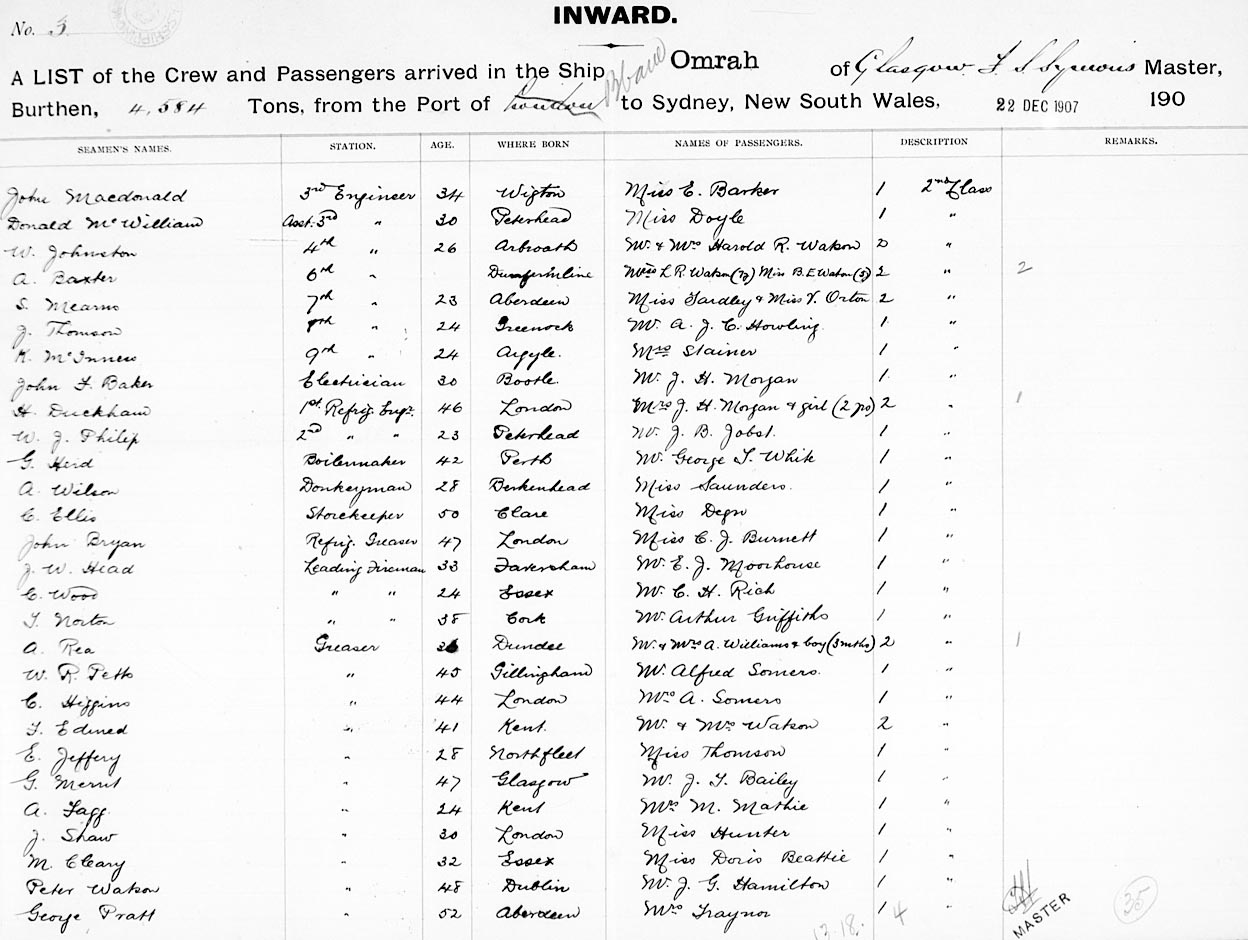 INWARD.
No. 3
A LIST of the Crew and Passengers arrived in the Ship Omrah of Glasgow F. S. Symons Master,
Bbane
Burthen, 4,584 Tons, from the Port of London to Sydney, New South Wales, 22 DEC 1907 190
SEAMEN'S NAMES. STATION. AGE. WHERE BORN NAMES OF PASSENGERS. DESCRIPTION REMARKS.
John Macdonald 3rd Engineer 34 Wigton Miss E. Barker 1 2nd Class
Donald McWilliam Asst. 3rd " 30 Peterhead Miss Doyle 1 "
W. Johnston 4th " 26 Arbroath Mr. & Mrs Harold R. Watson 2 "
A. Baxter 6th " Dunfermline Miss L. R. Watson Miss B. E. Watson 2 " 2
S. Mearns 7th " 23 Aberdeen Miss Yardley & Miss V. Orton 2 "
J. Thomson 8th " 24 Greenock Mr. A. J. C. Howling 1 "
K. McInness 9th " 24 Argyle. Mrs Stainer 1 "
John F. Baker Electrician 30 Bootle. Mr. J. H. Morgan 1 "
H. Duckham 1st. Refrig. Engr. 46 London Mrs J. H. Morgan & girl (2 yrs) 2 " 1
W. J. Philip 2nd " " 23 Peterhead Mr. J. B. Jobst. 1 "
G. Herd Boilermaker 42 Perth Mr. George T. White 1 "
A. Wilson Donkeyman 28 Berkenhead Miss Saunders. 1 "
C. Ellis Storekeeper 50 Clare Miss Degn 1 "
John Bryan Refrig. Greaser 47 London Miss C. J. Burnett 1 "
J. W. Head Leading Fireman 33 Faversham Mr. E. J. Moorhouse 1 "
C. Wood " " 24 Essex Mr. C. H. Rich 1 "
T. Norton " " 38 Cork Mr. Arthur Griffiths 1 "
A. Rea Greaser Dundee Mr. & Mrs A. Williams & boy (3 mths) 2 " 1
W. R. Petts " 45 Gillingham Mr. Alfred Somers. 1 "
C. Higgins " 44 London Mrs A. Somers 1 "
T. Edmed " 41 Kent. Mr. & Mrs Watson 2 "
E. Jeffery " 28 Northfleet Miss Thomson 1 "
G. Merrit " 47 Glasgow Mr. J. T. Bailey 1 "
A. Fagg. " 24 Kent Mrs M. Mathie 1 "
J. Shaw " 30 London Miss Hunter 1 "
M. Cleary " 32 Essex Miss Doris Beattie 1 "
Peter Watson " 48 Dublin Mr. J. G. Hamilton 1 "
George Pratt " 52 Aberdeen Mrs Traynor 1 "
13.18. 4 MASTER 35